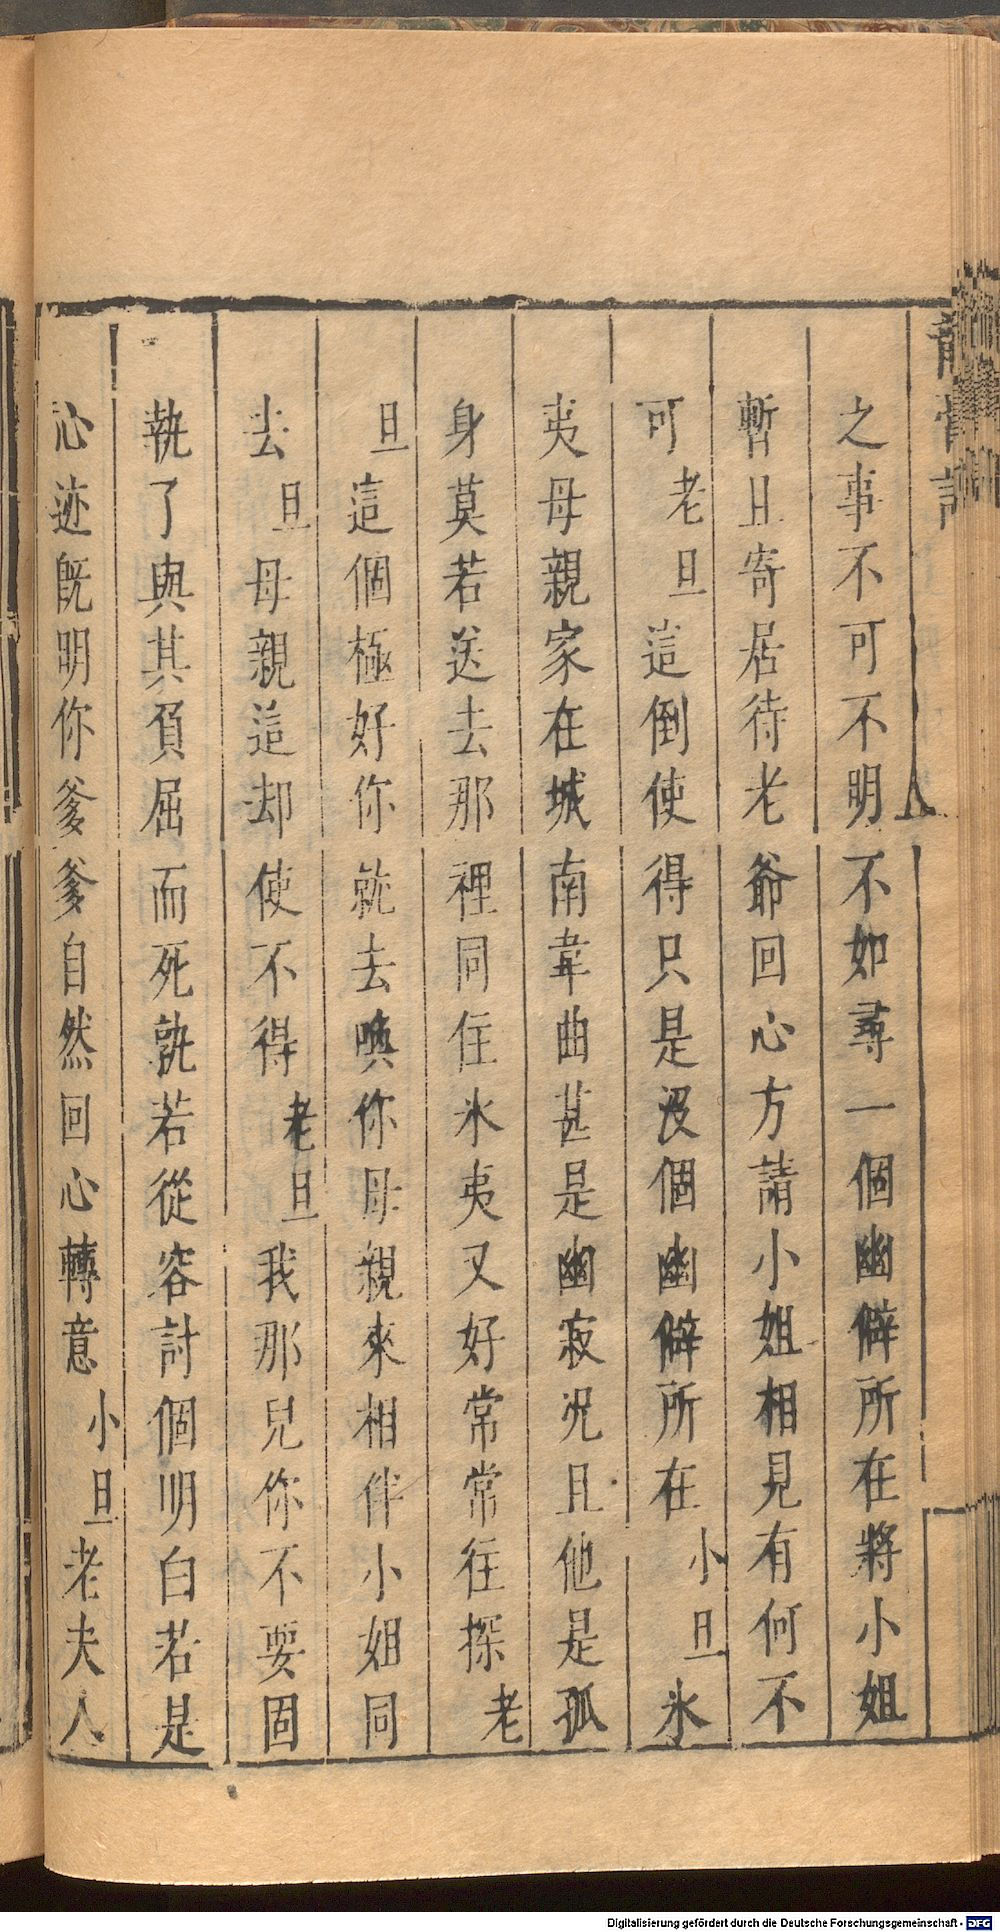 之事不可不明不如尋一個幽僻所在將小姐
暫且寄居待老爺回心方請小姐相見有何不
可老旦這倒使得只是沒個幽僻所在小旦氷
夷母親家在城南韋曲甚是幽寂况且他是孤
身莫若送去那裡同住氷夷又好常常往探老
旦這個極好你就去喚你母親來相伴小姐同
去旦母親這却使不得老旦我那兒你不要固
執了與其負屈而死孰若從容討個明白若是
心迹旣明你爹爹自然回心轉意小旦老夫人
Digitalisierung gefördert durch die Deutsche Forschungsgemeinschaft - DFG